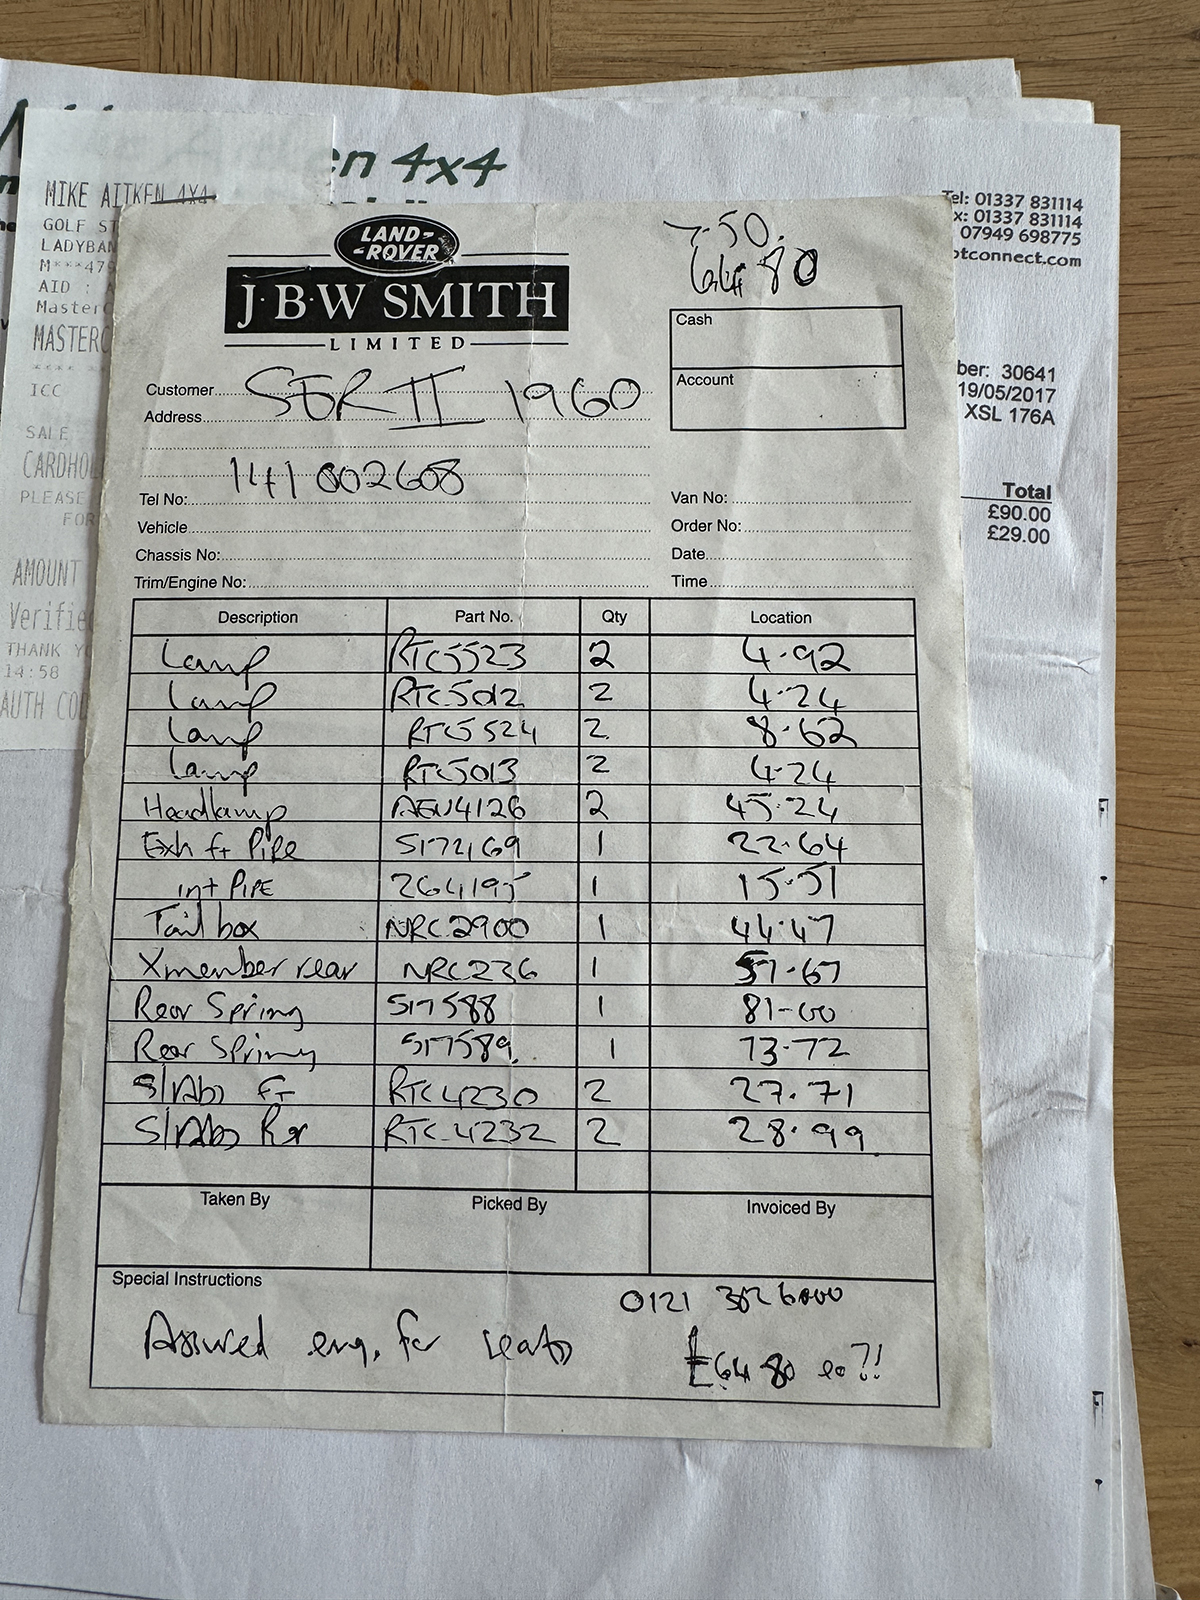 en 4x4
MIKE AITKEN 4X4
GOLF ST
LADYBAN
M***479
AID : A
MasterC
MASTERC
**** **
ICC
SALE
CARDHOL
PLEASE
FOR
AMOUNT
Verifie
THANK Y
14:58
AUTH COD
Tel: 01337 831114
x: 01337 831114
07949 698775
otconnect.com
ber: 30641
19/05/2017
XSL 176A
Total
£90.00
£29.00
LAND-
-ROVER
J·B·W SMITH
LIMITED
7.50.
64.80
Cash
Account
Customer SER II 1960
Address
141 002608
Tel No:
Van No:
Vehicle
Order No:
Chassis No:
Date
Trim/Engine No:
Time
Description Part No. Qty Location
Lamp RTC5523 2 4.92
Lamp RTC5012 2 4.24
Lamp RTC5524 2 8.62
Lamp RTC5013 2 4.24
Headlamp AEU4126 2 45.24
Exh ft Pipe 5172169 1 22.64
int PIPE 264195 1 15.51
Tail box NRC2900 1 44.47
Xmember rear NRC236 1 57.67
Rear Spring 517588 1 81-00
Rear Spring 517589. 1 73.72
S/Abs Ft RTC4230 2 27.71
S/Abs Rr RTC4232 2 28.99
Taken By Picked By Invoiced By
Special Instructions
0121
Assured enq. for seats
£64.80 ea?!